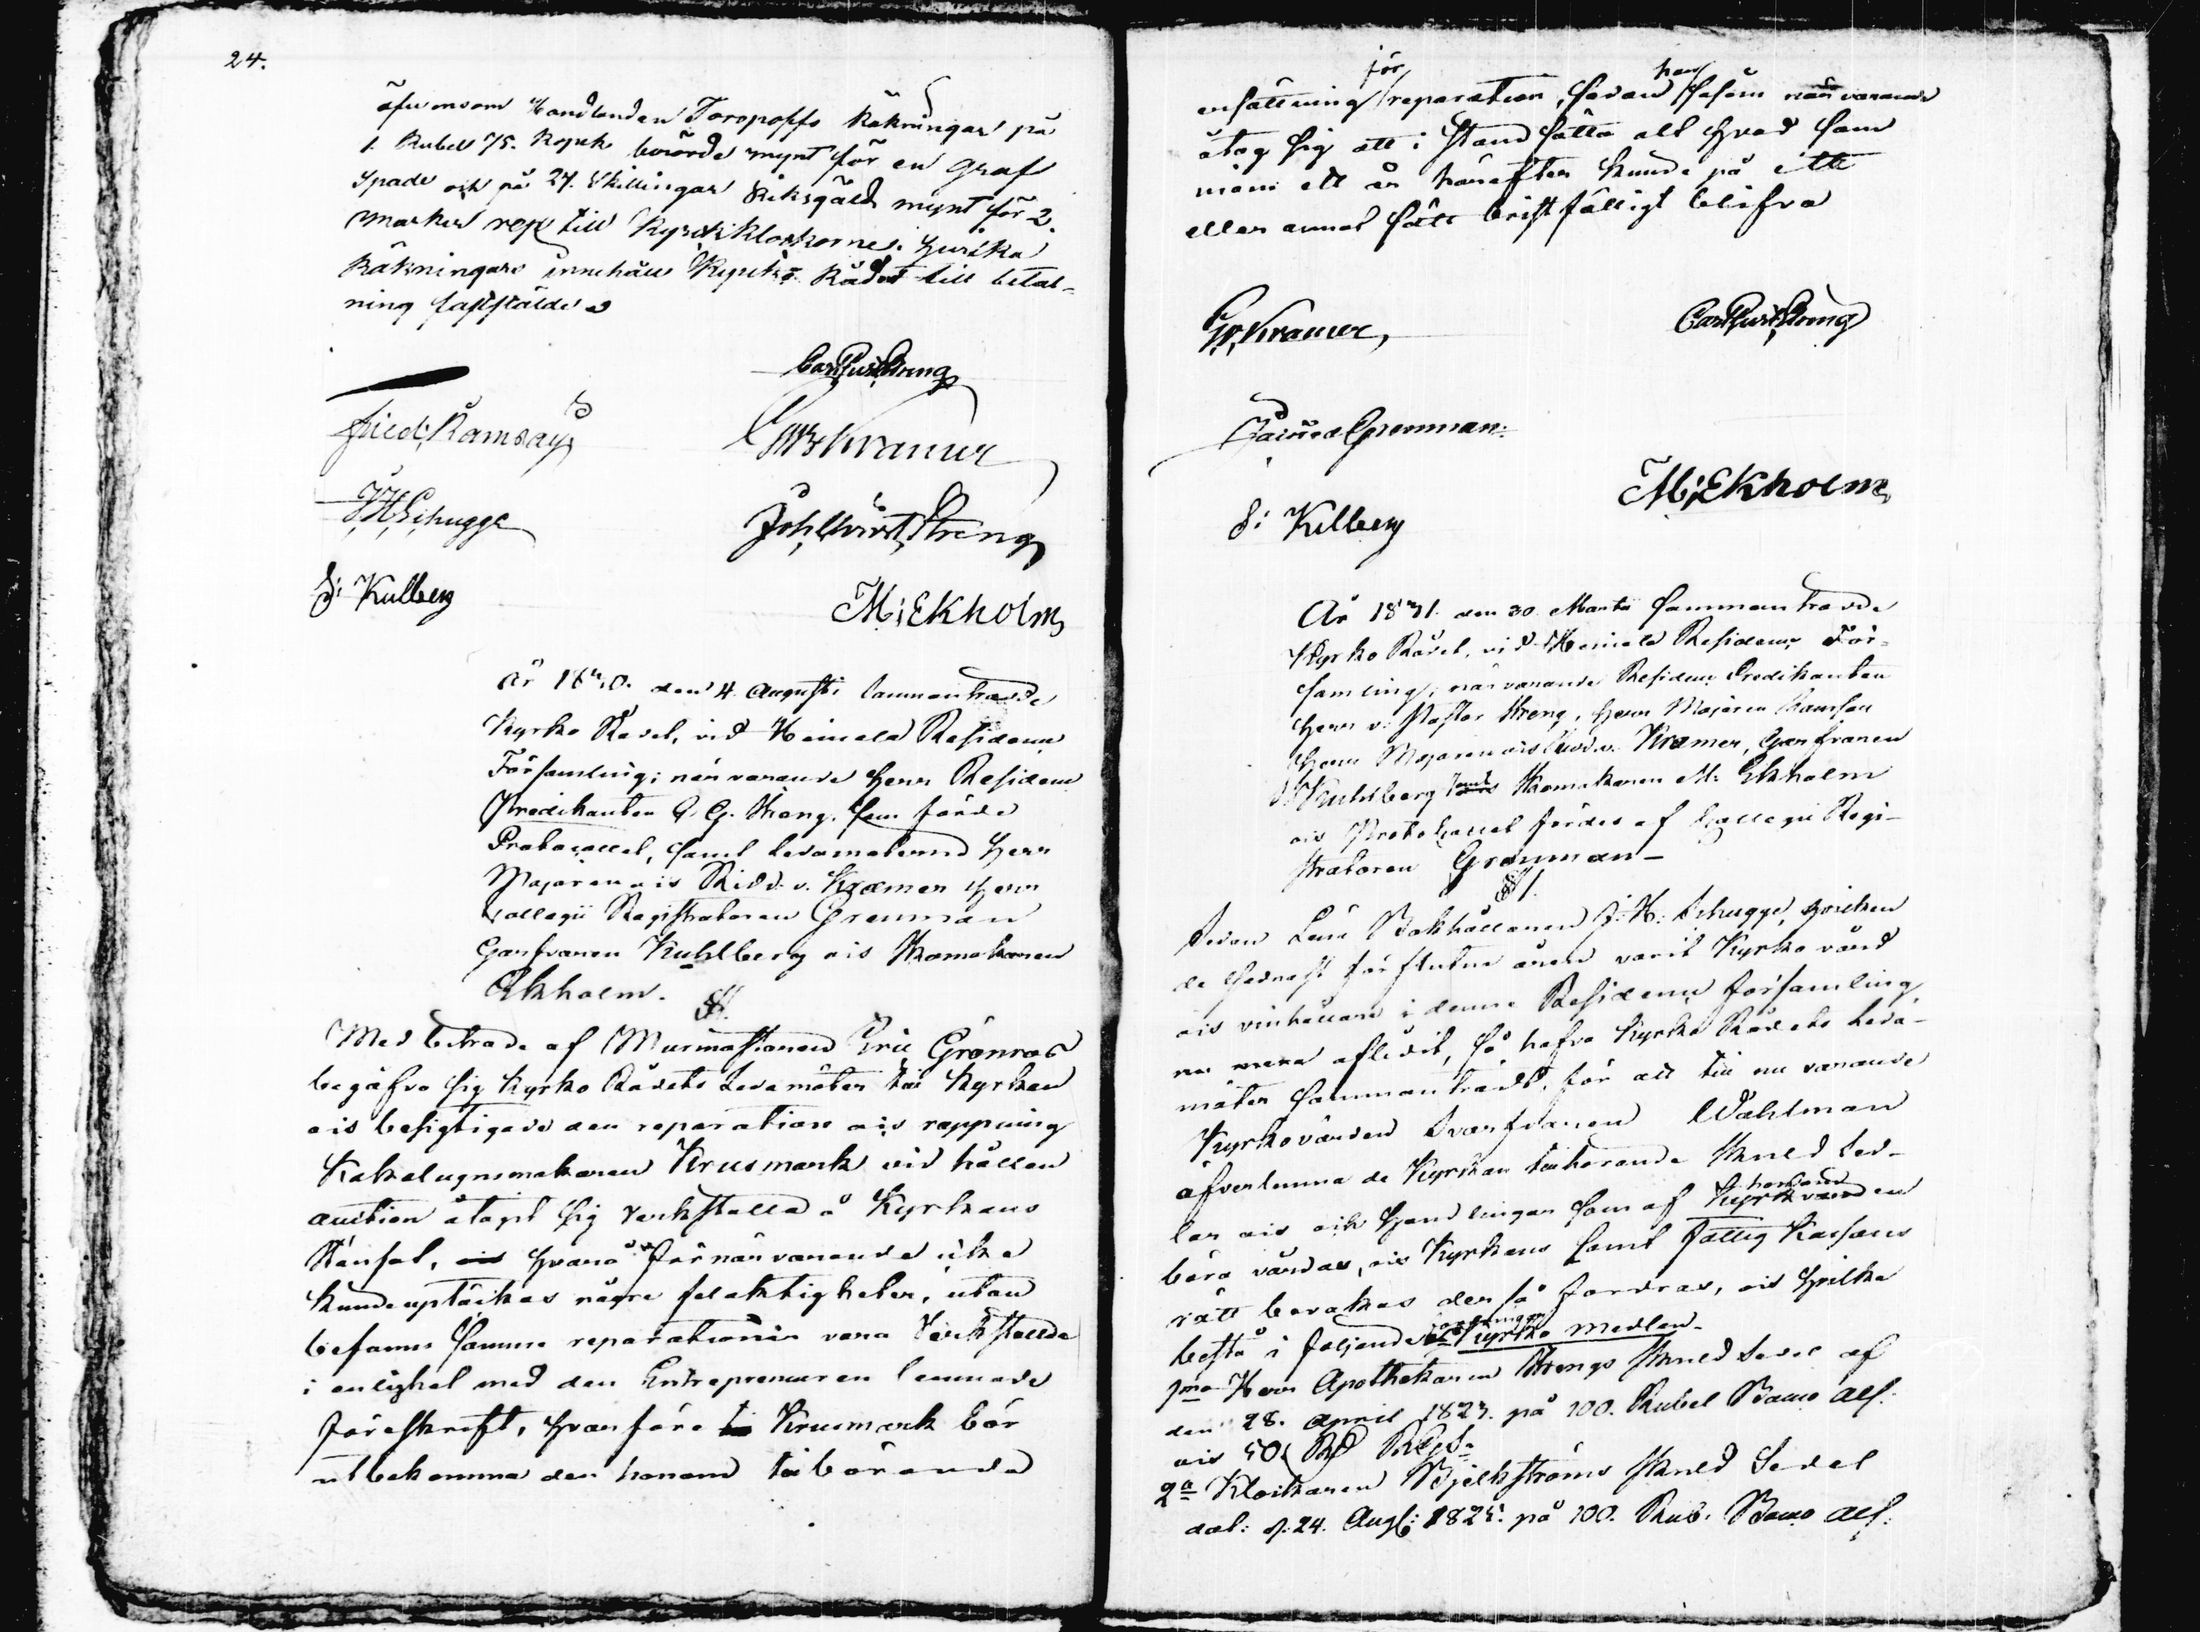 24.
äfvensom Handlanden Toropoffs Räkningar på
1. Rubel 75. Kopek berörde mynt för en graf
spade och på 24. Skillingar Riksgäld mynt för 2.
marker rep till Kyrckklockorne. hvilka
Räkningars innehåll Kyrcko Rådet till betal-
ning fastställde
Carl Gust Streng
Fried: Ramsay
GW v Kramer
J H Schugge
Joh Streng
S: Kulberg
M: Ekholm
År 1830. den 4. Augusti sammanträdde
Kyrko Rådet, vid Heinola Residence
Församling; närvarande Herr Residence
Predikanten C. G. Streng, som förde
Protocollet, samt Ledamöterne Herr
Majoren och Ridd. v. Kræmer Herr
Collegii Registratoren Grenman
Garfvaren Kuhlberg och Skomakaren
Ekholm.
§ 1.
Med biträde af Murmästaren Eric Grönroos
begåfvo sig Kyrko Rådets Ledamöter till Kyrkan
och besigtigade den reparation och rappning
Kakelugnsmakaren Krusmark vid hållen
auction åtagit sig verkställa å Kyrkans
Stenfot, hvarå för närvarande icke
kunde uptäckas någre felaktigheter, utan
befanns samme reparation vara Verkstelld
i enlighet med den Entrepreneuren lemnade
föreskrift, hvarföre Krusmark bör
utbekomma den honom tillkommande
ersättning för reparation, sedan han såsom närvarande
åtog sig att i stand sätta alt hvad som
inom ett år härefter kunde på ett
eller annat sätt bristfälligt blifva
Gv Kramer,
Carl Gust Streng
Grenman.
M: Ekholm
S: Kulberg
År 1831. den 30. Martii sammanträdde
Kyrko Rådet, vid Heinola Residence För-
samling; närvarande Residence Predikanten
Herr v. Pastor Streng, Herr Majoren Ramsay
Herr Majoren och Ridd. v. Kræmer, Garfvaren
Kuhlberg samt Skomakaren M. Ekholm
och Protokollet fördes af Collegii Regi-
stratoren Grenman –
§ 1.
Sedan Läns Bokhållaren J. H. Schugge, hvilken
de sednast förflutne åren varit Kyrko värd
och vinhållare i denne Residence församling,
nu mera aflidit, så hafva Kyrko Rådets Leda-
möter sammanträdt, för att till nu varande
Kyrkovärden Svarfvaren Wahlman
öfverlemna de Kyrkan tillhörande Skuld Sed-
lar och och Handlingar som af Kyrkvärden
böra vårdas, och Kyrkans samt Fattig Kassans
rätt bevakas der så fordras, och hvilka
bestå i följande Kyrko medlen –
1mo Herr Apothekaren Strengs Skuld Sedel af
den 28. April 1823. på 100. Rubel Banco Ass.
och 50 Rd Rgs.
2a Klockaren Bjelkströms Skuld Sedel
dat: d. 24. Aug: 1825. på 100. Rub. Banco Ass.